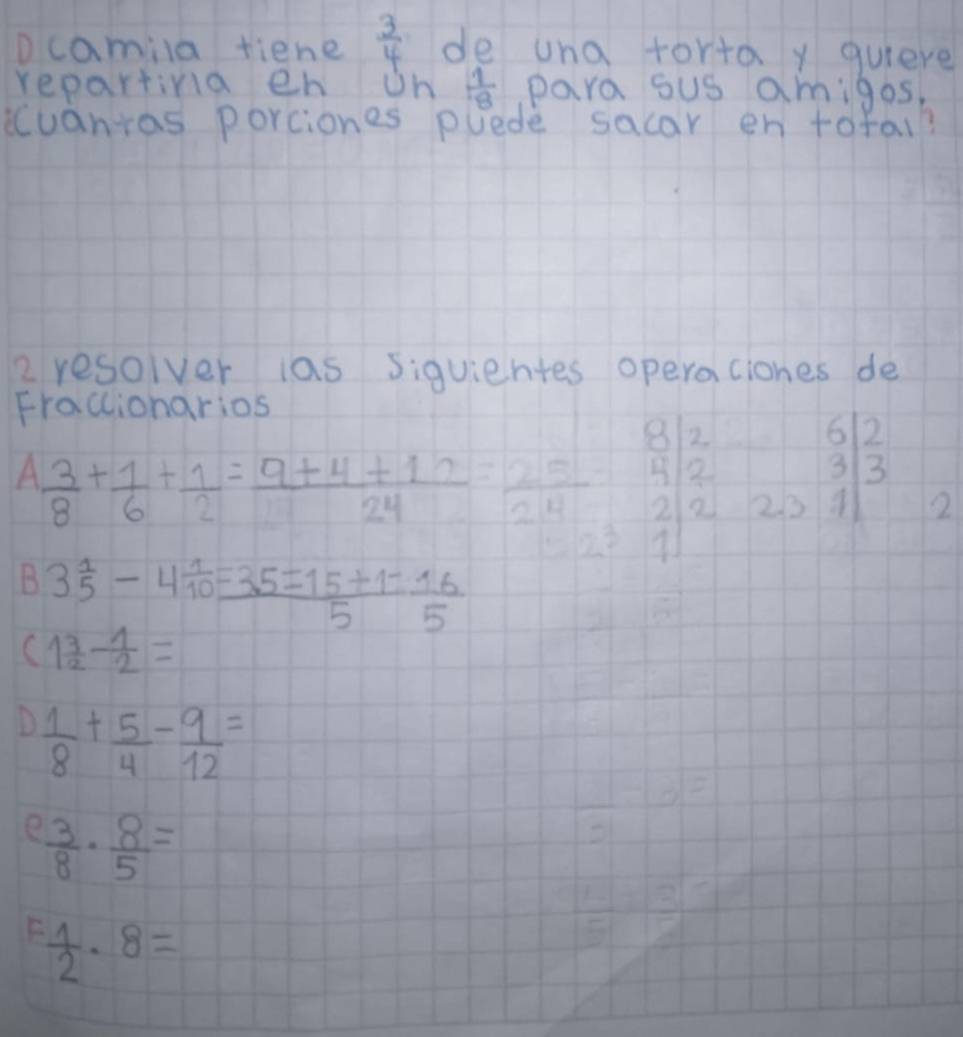 D camila tiene 3/4 de una torta y quiere
repartirla en un 1/8 para sus amigos.
¿Cuantas porciones puede sacar en total?
2 resolver las siguientes operaciones de
Fraccionarios
A 3/8 + 1/6 + 1/2 = 9+4+12/24 = 25/24
8|2 6|2
4|2 3|3
2|2 2.3 1| 2
2³ 1
B 3 1/5 - 4 1/10 = 3.5=15+1/5 = 16/5
C 1 3/2 - 1/2 =
D 1/8 + 5/4 - 9/12 =
e 3/8 . 8/5 =
F 1/2 . 8 =